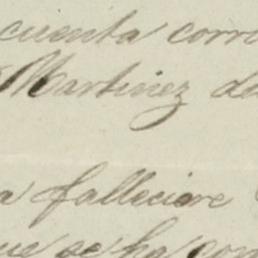 cuenta corri
Martinez de
a falleciere
que se ha con